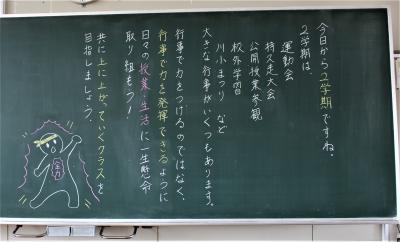 今日から2学期ですね。
2学期は、
運動会
持久走大会
公開授業参観
校外学習
川小まつり など
大きな行事がいくつもあります。
行事で力をつけるのではなく、
行事で力を発揮できるように
日々の授業・生活に一生懸命
取り組もう！
共に上に上がっていくクラスを
目指しましょう。
全力